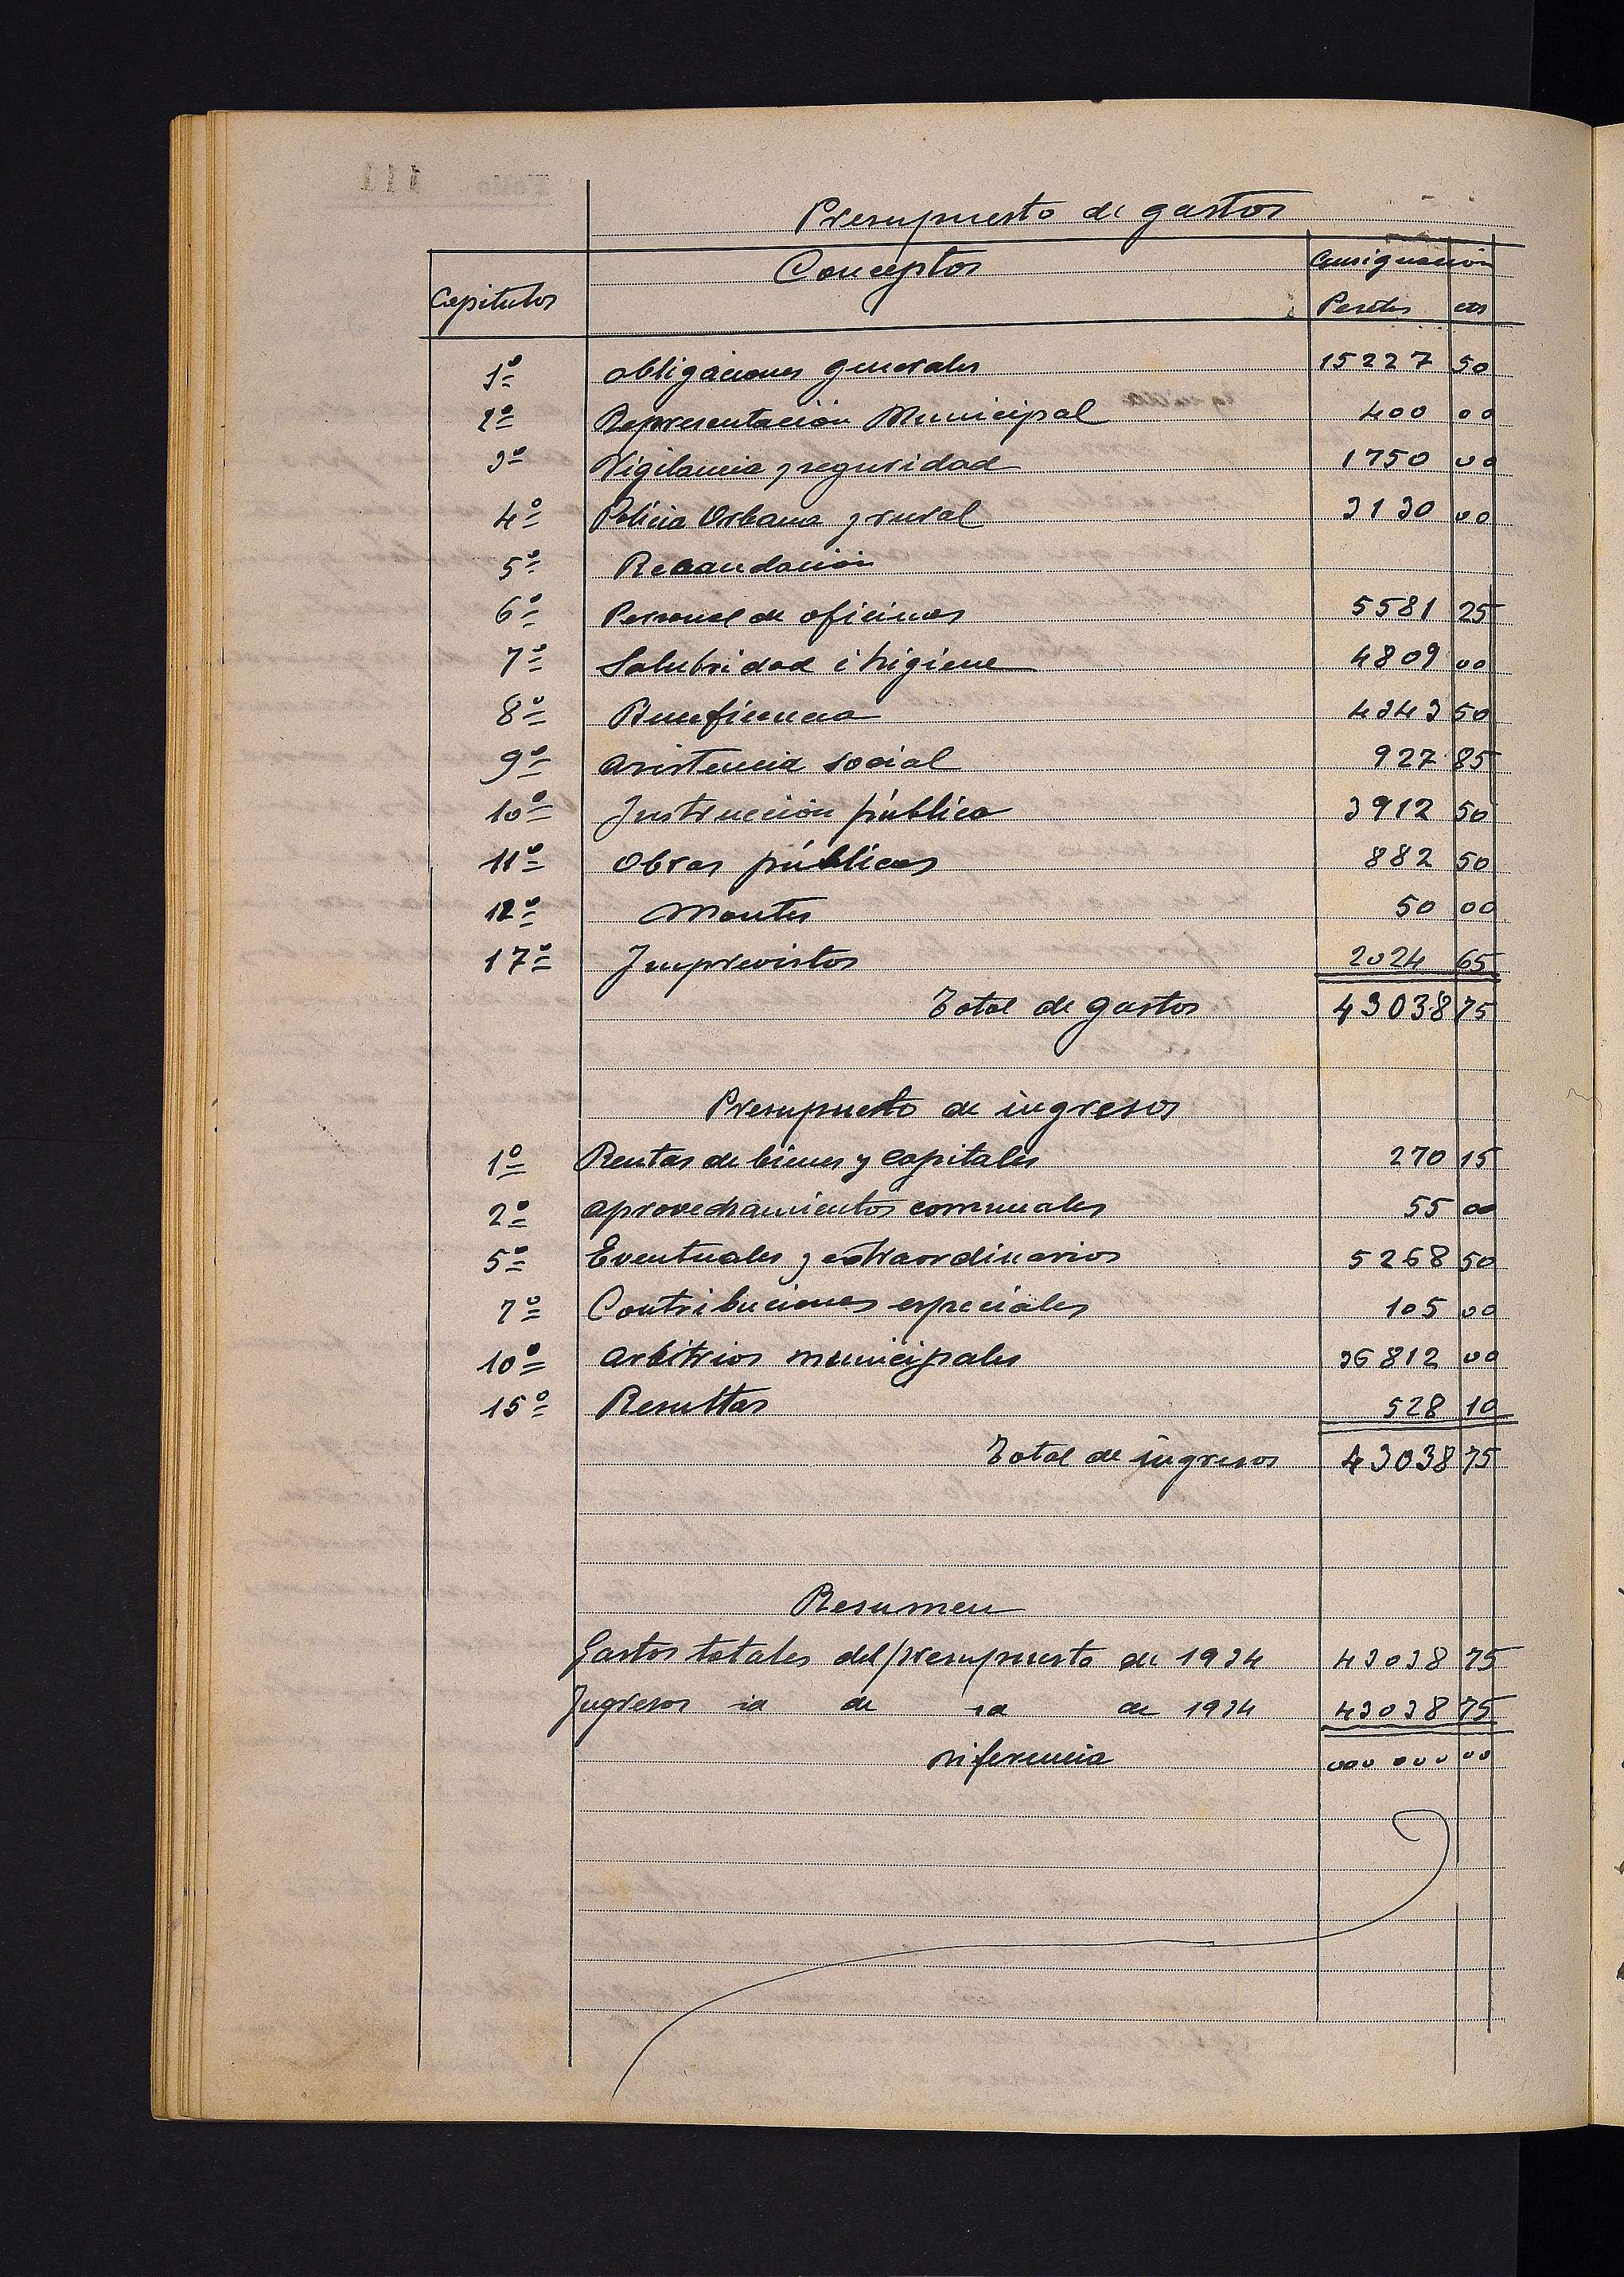 Presupuesto de gastos
Capitulos Conceptos Consignacion
Pesetas cts
1º obligaciones generales 15227 50
2º Representación Municipal 400 00
3º Vigilancia y seguridad 1750 00
4º Policia Urbana y rural 3130 00
5º Recaudación
6º Personal de oficinas 5581 25
7º Salubridad e higiene 4809 00
8º Beneficencia 4343 50
9º asistencia social 927 85
10º Instrucción pública 3912 50
11º Obras públicas 882 50
12º Montes 50 00
17º Imprevistos 2024 65
Total de gastos 43038 75
Presupuesto de ingresos
1º Rentas de bienes y capitales 270 15
2º aprovechamientos comunales 55 00
5º Eventuales y extraordinarios 5268 50
7º Contribuciones especiales 105 00
10º arbitrios municipales 36812 00
15º Resultas 528 10
Total de ingresos 43038 75
Resumen
Gastos totales del presupuesto de 1934 43038 75
Ingresos id de id de 1934 43038 75
Diferencia 000 000 00